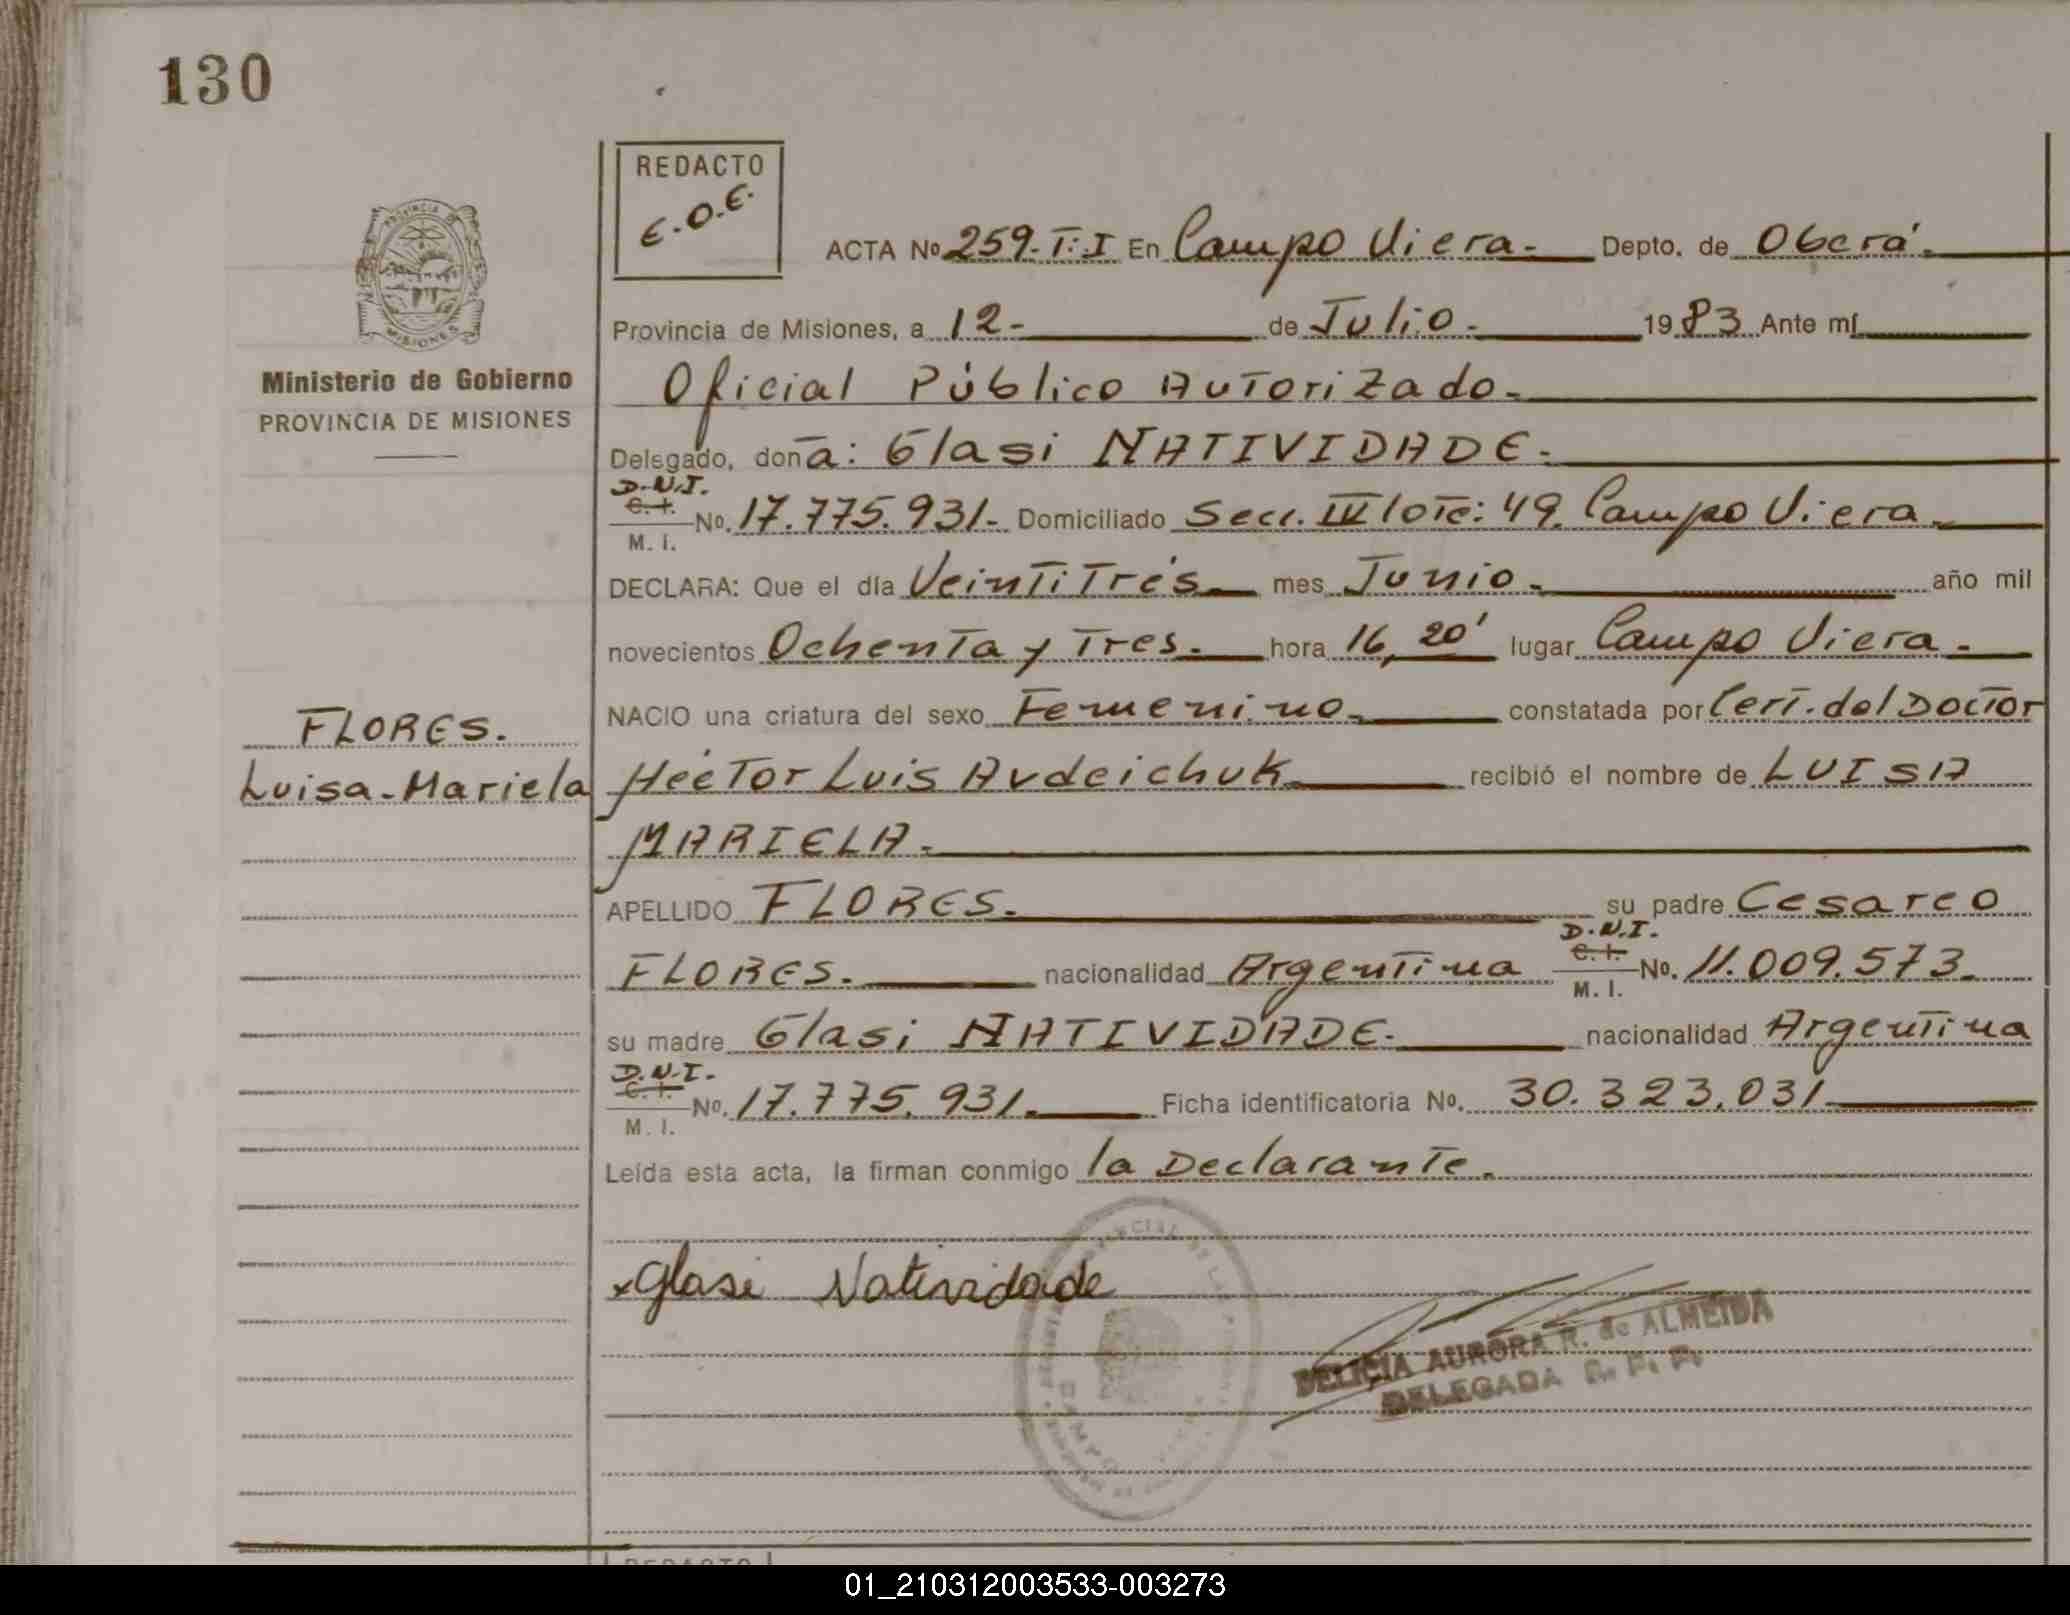 130
REDACTO
E.O.E.
ACTA No 259. T: I En Campo Viera.- Depto. de Oberá.-
Provincia de Misiones, a 12- de Julio.- 1983 Ante mí
Ministerio de Gobierno
PROVINCIA DE MISIONES
Oficial Público Autorizado.-
Delegado, doña: Glasi NATIVIDADE.-
D.N.I.
C.I.
M. I.
No. 17.775.931.- Domiciliado Secc. IV lote: 49. Campo Viera.-
DECLARA: Que el día Veintitrés.- mes Junio.- año mil
novecientos Ochenta y Tres.- hora 16,20' lugar Campo Viera.-
NACIO una criatura del sexo Femenino.- constatada por Cert. del Doctor
FLORES.
Luisa-Mariela
Héctor Luis Avdeichuk recibió el nombre de LUISA
MARIELA.-
APELLIDO FLORES.- su padre Cesareo
FLORES.- nacionalidad Argentina
D.N.I.
C.I.
M. I.
No. 11.009.573.-
su madre Glasi NATIVIDADE.- nacionalidad Argentina
D.N.I.
C.I.
M. I.
No. 17.775.931.- Ficha identificatoria No. 30.323.031
Leída esta acta, la firman conmigo la Declarante.-
x Glasi Natividade
DELICIA AURORA R. de ALMEIDA
DELEGADA
REDACTO
01_210312003533-003273